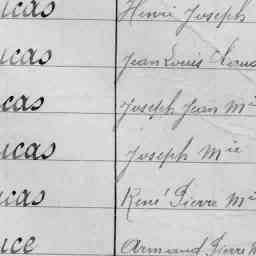 ucas Henri Joseph
ucas Jean Louis
ucas Joseph Jean Mie
ucas Joseph Mie
ucas René Pierre Mi
uce Armand Pierre M